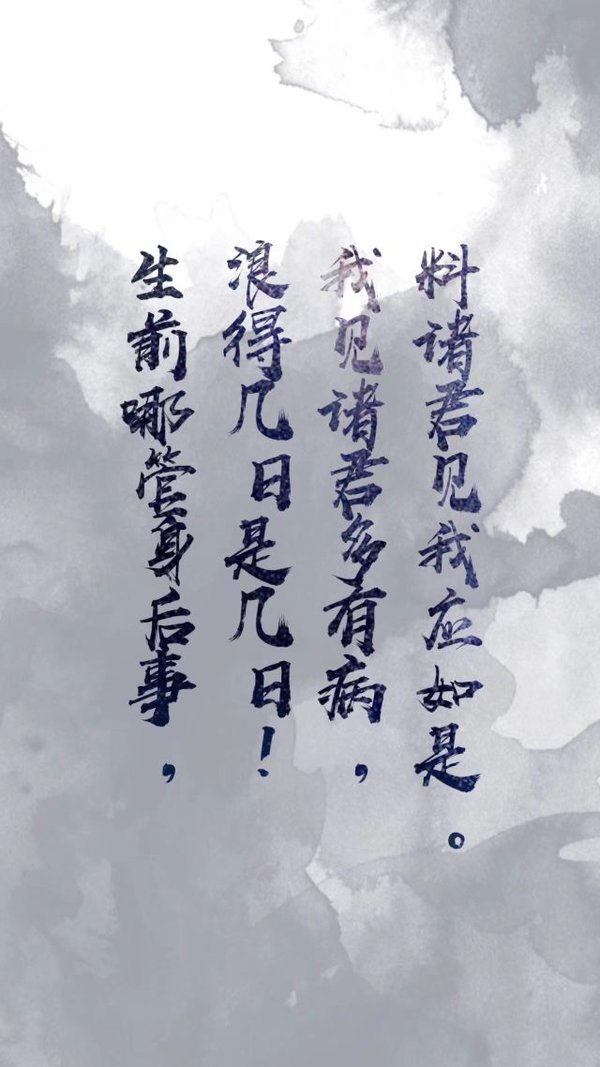 生前哪管身后事，
浪得几日是几日！
我见诸君多有病，
料诸君见我应如是。